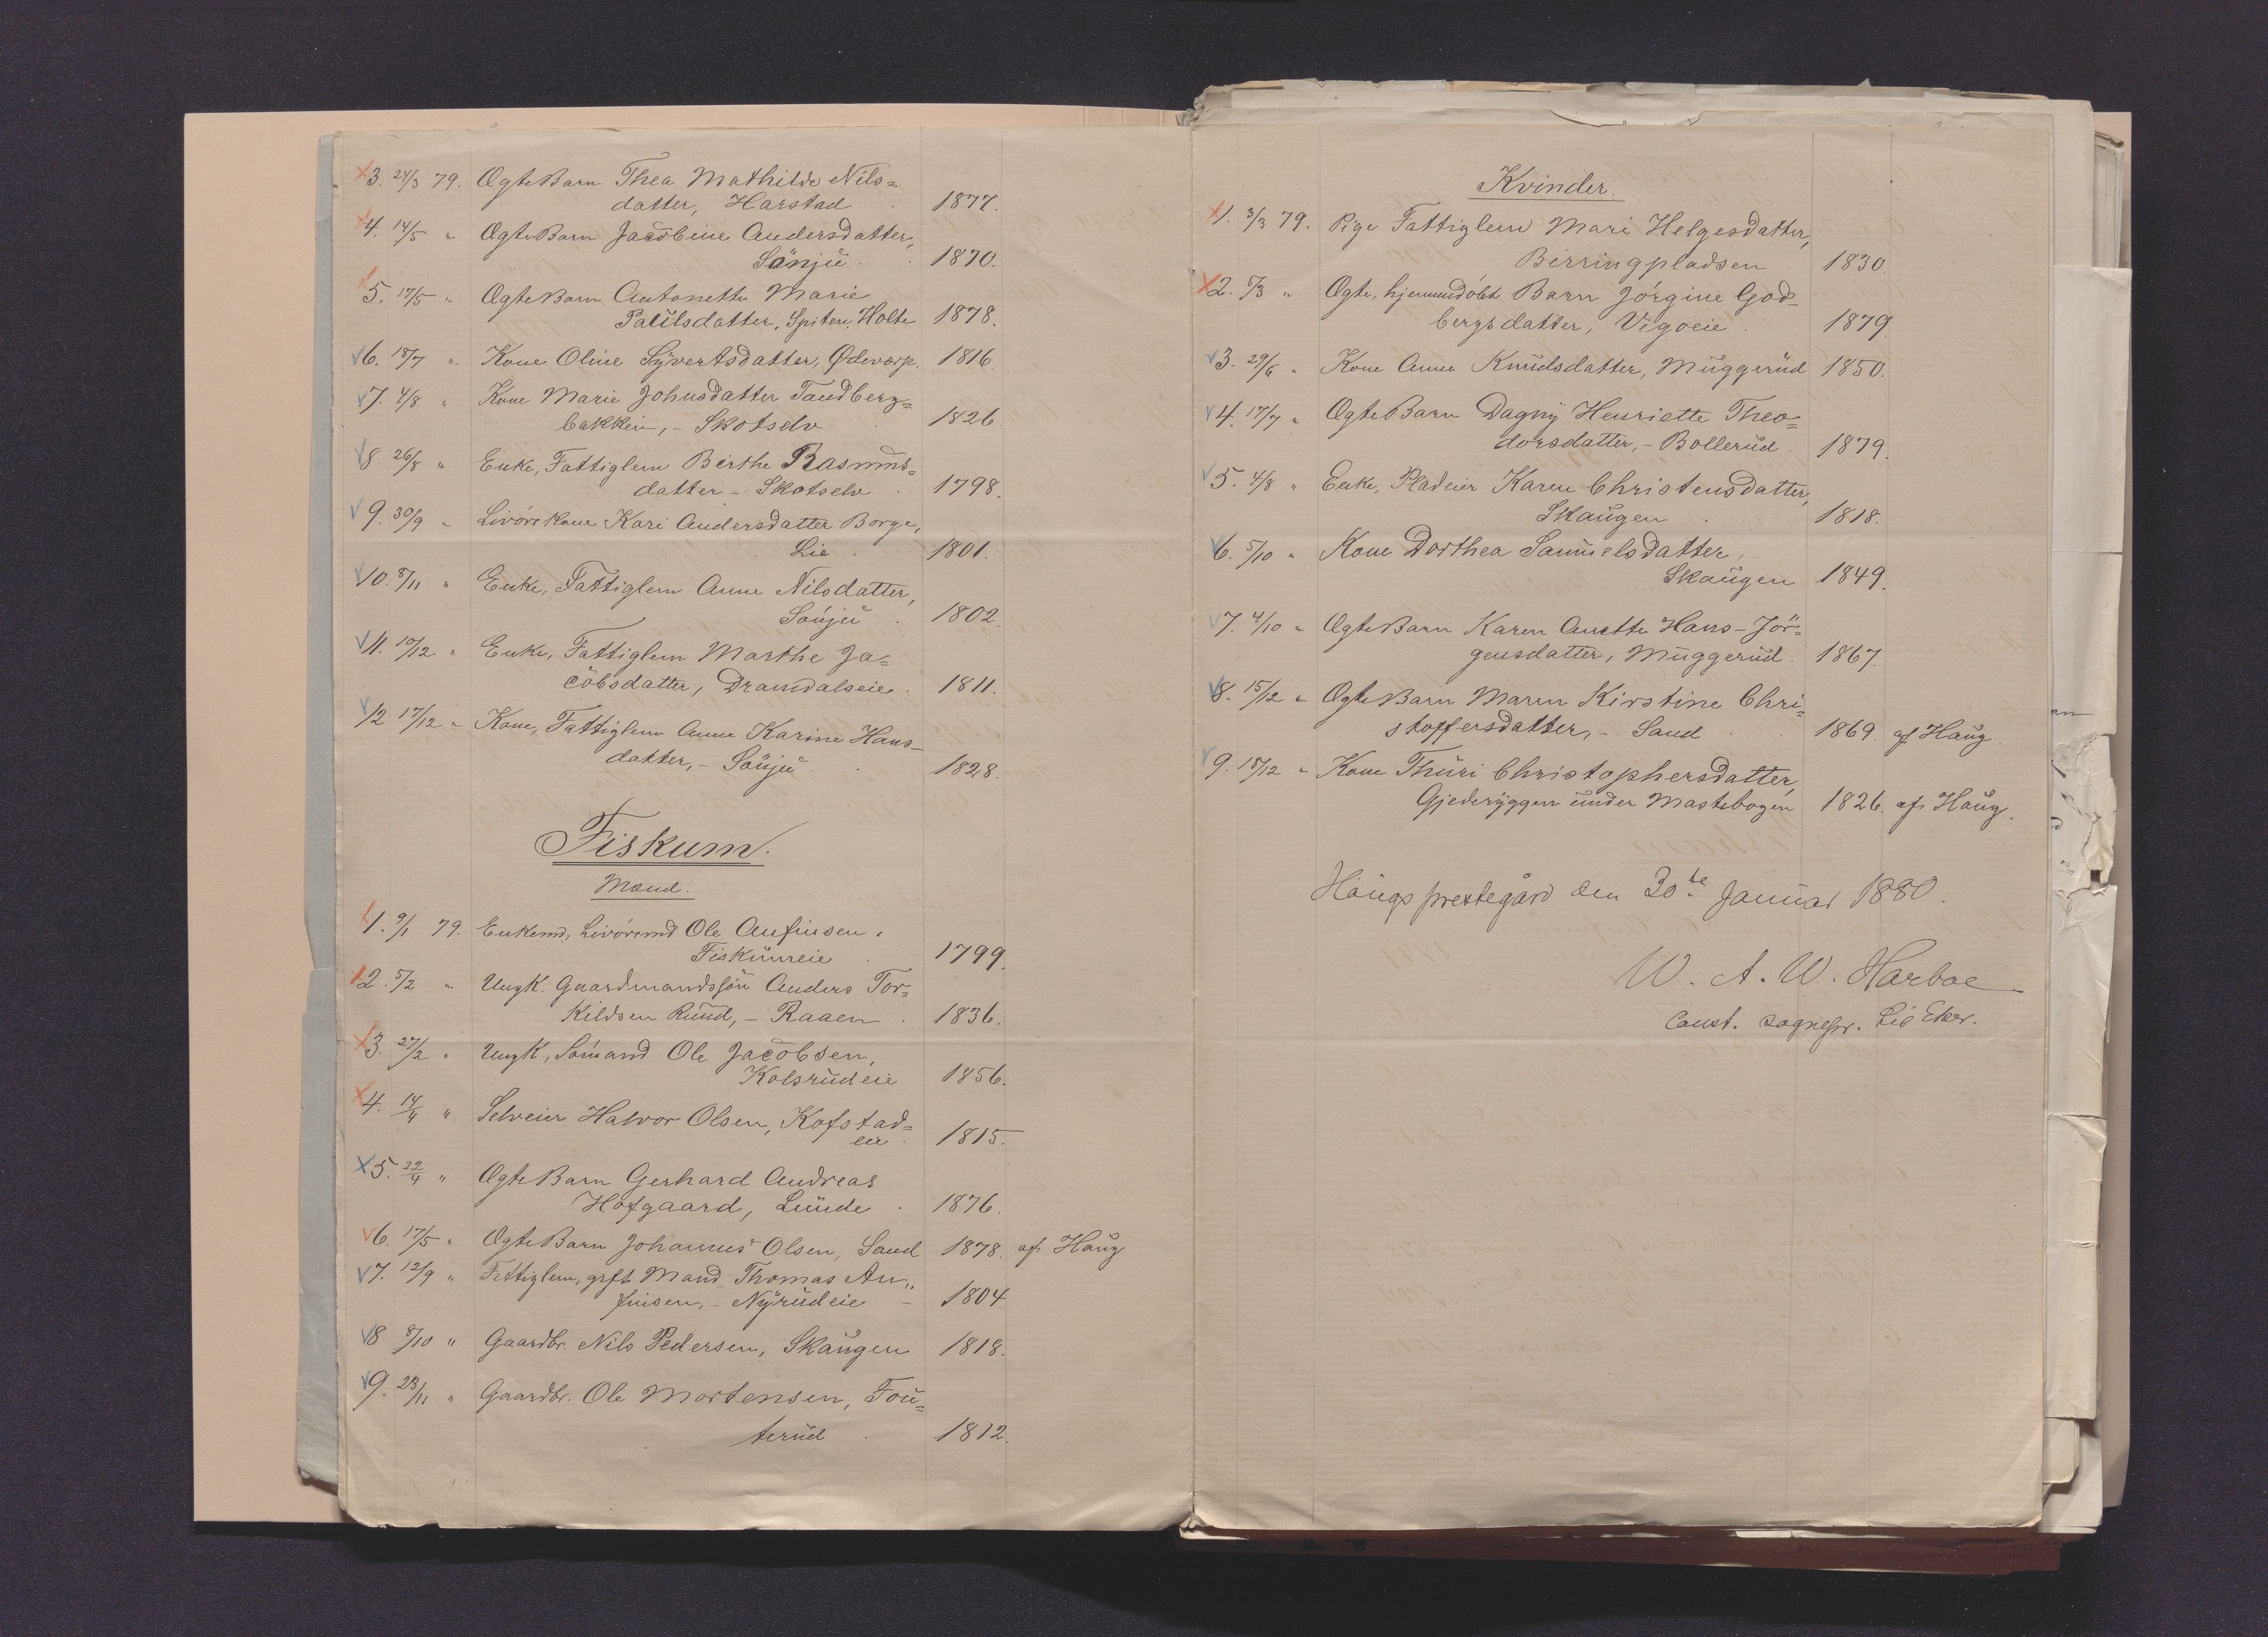 3. 24/3 79. Ægte Barn Thea Mathilde Nils=
datter, Harstad . 1877.
4. 14/5 " Ægte Barn Jacobine Andersdatter,
Sönju . . 1870.
5. 17/5 " Ægte Barn Antonette Marie
Paulsdatter, Spiten, Holte 1878.
6. 18/7 " Kone Oline Syvertsdatter, Ødevarp. 1816.
7. 4/8 " Kone Marie Johnsdatter Tandberg=
bakken, - Skotselv . 1826
8. 26/8 " Enke, Fattiglem Birthe Rasmus=
datter - Skotselv . 1798.
9. 30/9 " Livörskone Kari Andersdatter Borge,
Lie . 1801.
10. 8/11 " Enke, Fattiglem Anne Nilsdatter,
Sönju . 1802.
11. 10/12 " Enke, Fattiglem Marthe Ja=
cobsdatter, Dramdalseie . 1811.
12 17/12 " Kone, Fattiglem Anne Karine Hans-
datter, - Sönju . 1828.
Fiskum.
Mænd.
1. 9/1 79. Enkemd, Livörsmd Ole Anfinsen,
Fiskumeie . 1799.
2. 5/2 " Ungk. Gaardmandssön Anders Tor=
kildsen Rud, - Raaen . 1836.
3. 27/2 " Ungk, Sömand Ole Jacobsen,
Kolsrudeie 1856.
4. 14/4 " Selveier Halvor Olsen, Kofstad=
eie . 1815.
5. 22/4 " Ægte Barn Gerhard Andreas
Hofgaard, Lunde . 1876.
6. 17/5 " Ægte Barn Johannes Olsen, Sand 1878. af Haug
7. 12/9 " Fattiglem, gift Mand Thomas An„
finsen, - Nyrudeie - 1804.
8 8/10 " Gaardbr. Nils Pedersen, Skaugen 1818.
9. 23/11 " Gaardbr. Ole Mortensen, Fou=
terud . 1812.
Kvinder.
1. 3/3 79. Pige Fattiglem Mari Helgesdatter,
Birringpladsen . 1830
2. 5/3 " Ægte, hjemmedöbt Barn Jörgine God=
bergsdatter, Vigoeie . 1879.
3. 29/6 " Kone Anne Knudsdatter, Muggerud 1850.
4. 17/7 " Ægte Barn Dagny Henriette Theo=
dorsdatter, - Bollerud . 1879.
5. 4/8 " Enke, Pladeier Karen Christensdatter,
Skaugen . 1818.
6. 5/10 " Kone Dorthea Samuelsdatter,
Skaugen 1849.
7. 4/10 " Ægte Barn Karen Anette Hans-Jör=
gensdatter, Muggerud . 1867.
8. 15/12 " Ægte Barn Maren Kirstine Chri=
stoffersdatter, - Sand . . 1869. af Haug.
9. 18/12 " Kone Thuri Christophersdatter,
Gjederyggen under Mastebogen 1826. af Haug.
Haugs prestegård den 30te Januar 1880.
W. A. W. Harboe
Const. sognepr. til Eker.